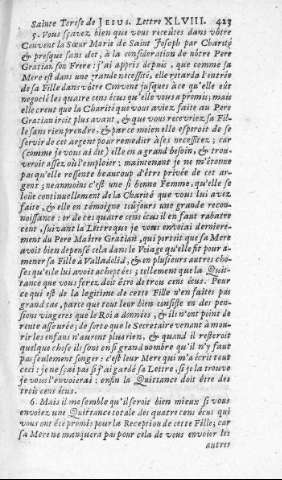 Sainte Terese de JESUS. Lettre XLVIII. 423
5. Vous sçavez bien que vous receütes dans vôtre
Couvent la Sœur Marie de Saint Joseph par Charité
& presque sans dot, à la consideration de nôtre Pere
Gratian son Frere: j'ai appris depuis, que comme sa
Mere est dans une grande necessité, elle retarda l'entrée
de sa Fille dans vôtre Couvent jusques à ce qu'elle eût
negocié les quatre cens écus qu'elle vous a promis; mais
elle crent que la Charité que vous aviez faite au Pere
Gratian iroit plus avant, & que vous recevriez sa Fil-
le sans rien prendre, & par ce moien elle esperoit de se
servir de cet argent pour remedier à ses necessitez; car
(comme je vous ai dit) elle en a grand besoin, & trou-
veroit assez où l'emploier: maintenant je ne m'étonne
pas qu'elle ressente beaucoup d'être privée de cet ar-
gent; neanmoins c'est une si bonne Femme, qu'elle se
loüe continuellement de la Charité que vous lui avez
faite, & elle en témoigne toûjours une grande recon-
noissance: or de ces quatre cens écus il en faut rabatre
cent, suivant la Lettre que je vous envoiai derniere-
ment du Pere Maître Gratian, qui portoit que sa Mere
avoit bien dépensé cela dans le Voiage qu'elle fit pour a-
mener sa Fille à Valladolid, & en plusieurs autres cho-
ses qu'elle lui avoit achetées; tellement que la Quit-
tance que vous ferez doit être de trois cens écus. Pour
ce qui est de la legitime de cette Fille n'en faites pas
grand cas, parce que tout leur bien consiste en des pen-
sions viageres que le Roi a données, & ils n'ont point de
rente assurée; de sorte que le Secretaire venant à mou-
rir les enfans n'auront plus rien, & quand il resteroit
quelque chose ils sont en si grand nombre qu'il n'y faut
pas seulement songer: c'est leur Mere qui m'a écrit tout
ceci: je ne sçai pas si j'ai gardé sa Lettre, si je la trouve
je vous l'envoierai: enfin la Quittance doit être des
trois cens écus.
6. Mais il me semble qu'il seroit bien mieux si vous
envoiez une Quittance totale des quatre cens écus qui
vous ont été promis pour la Reception de cette Fille; car
sa Mere ne manquera pas pour cela de vous envoier les
autres